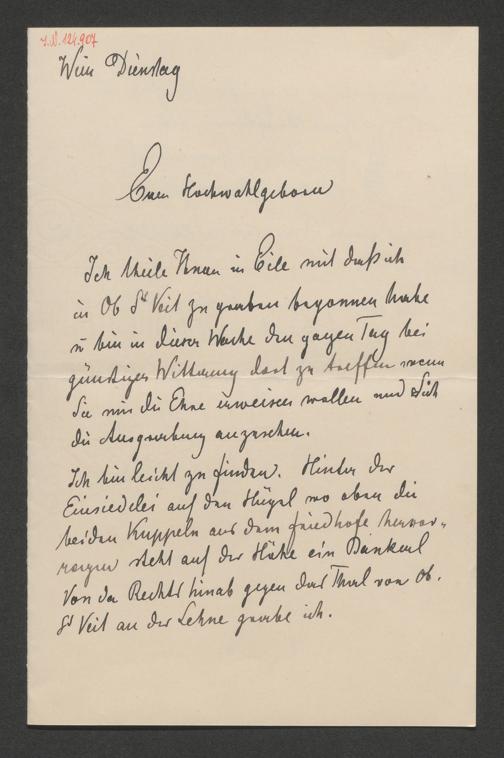 I.N. 124.907
Wien Dienstag
Euer Hochwohlgeboren
Ich theile Ihnen in Eile mit daß ich
in Ob St Veit zu graben begonnen habe
u bin in dieser Woche den ganzen Tag bei
günstiger Witterung dort zu treffen wenn
Sie mir die Ehre erweisen wollen und Sich
die Ausgrabung anzusehen.
Ich bin leicht zu finden. Hinter der
Einsiedelei auf den Hügel wo oben die
beiden Kuppeln aus dem Friedhofe hervor-
ragen steht auf der Höhe ein Bankerl
Von da Rechts hinab gegen das Thal von Ob.
St Veit an der Lehne grabe ich.